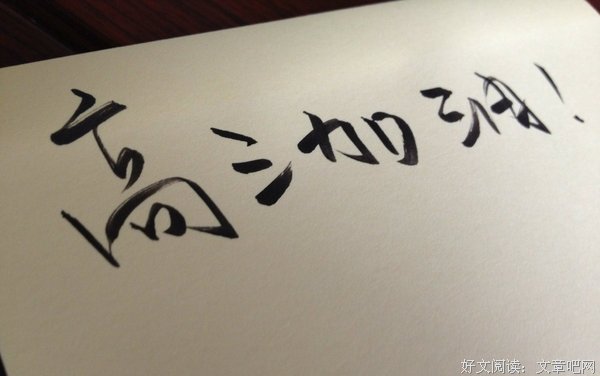 高三加油!
好文阅读：文章吧网